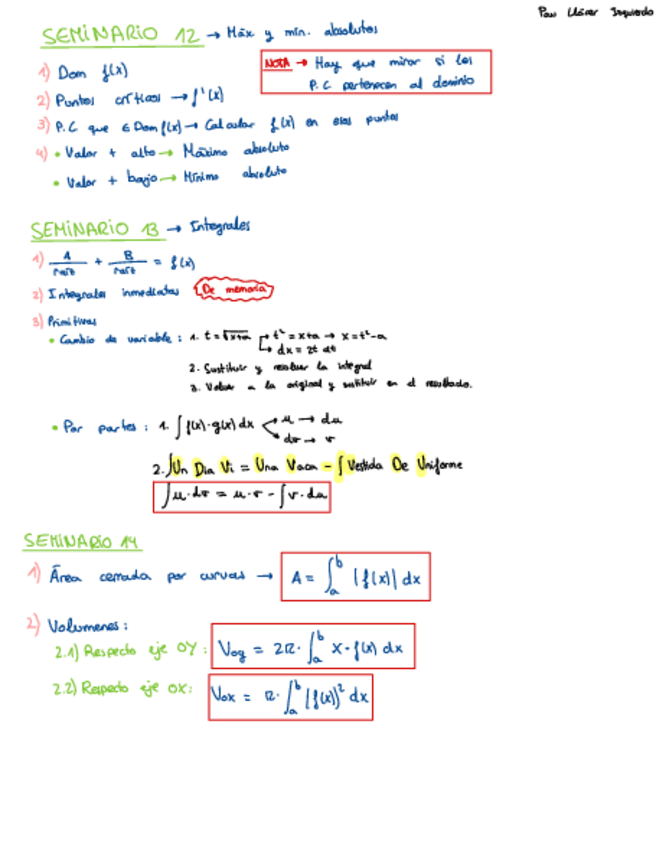 Pau Llácer Izquierdo
SEMINARIO 12 → Máx y mín. absolutos
NOTA → Hay que mirar si los
P.C pertenecen al dominio
1) Dom f(x)
2) Puntos críticos → f'(x)
3) P.C que ∈ Dom f(x) → Calcular f(x) en esos puntos
4) • Valor + alto → Máximo absoluto
• Valor + bajo → Mínimo absoluto
SEMINARIO 13 → Integrales
1) A/raíz + B/raíz = f(x)
2) Integrales inmediatas De memoria
3) Primitivas
• Cambio de variable : 1. t = √x+a → t² = x+a → x = t²-a
→ dx = 2t dt
2. Sustituir y resolver la integral
3. Volver a la original y sustituir en el resultado.
• Por partes : 1. ∫ f(x)·g(x) dx u → du
dv → v
2. ∫Un Dia Vi = Una Vaca - ∫ Vestida De Uniforme
∫u·dv = u·v - ∫v·du
SEMINARIO 14
1) Área cerrada por curvas → A = ∫ₐᵇ |f(x)| dx
2) Volumenes :
2.1) Respecto eje OY : Voy = 2π · ∫ₐᵇ x · f(x) dx
2.2) Respecto eje OX : Vox = π · ∫ₐᵇ (f(x))² dx